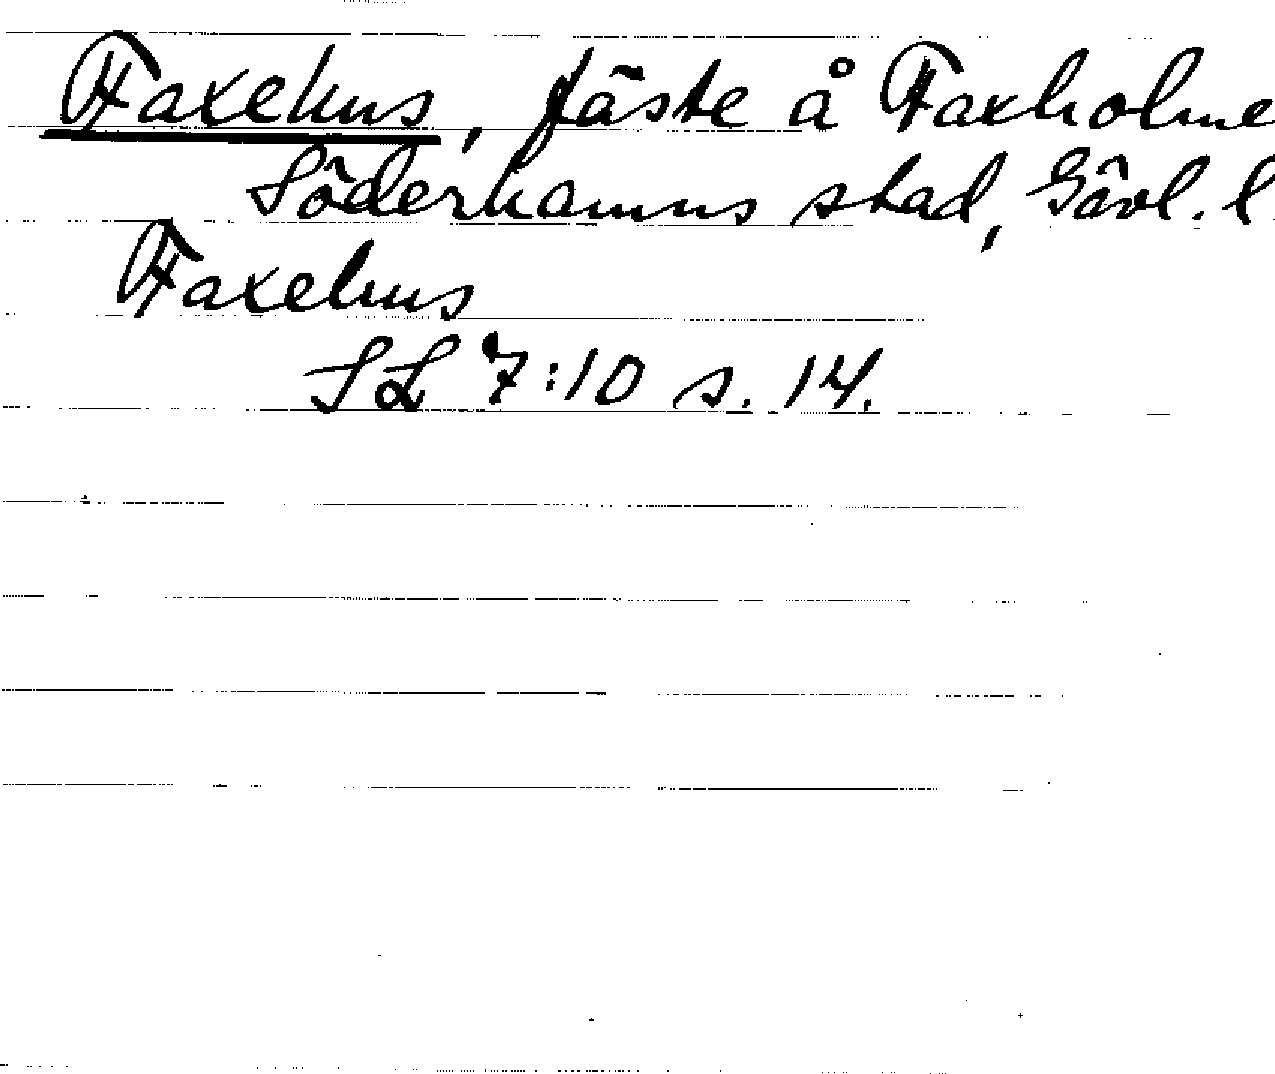 Faxehus, fäste å Faxholme
Söderhamns stad, Gävl. l
Faxehus
SL 7:10 s. 14.